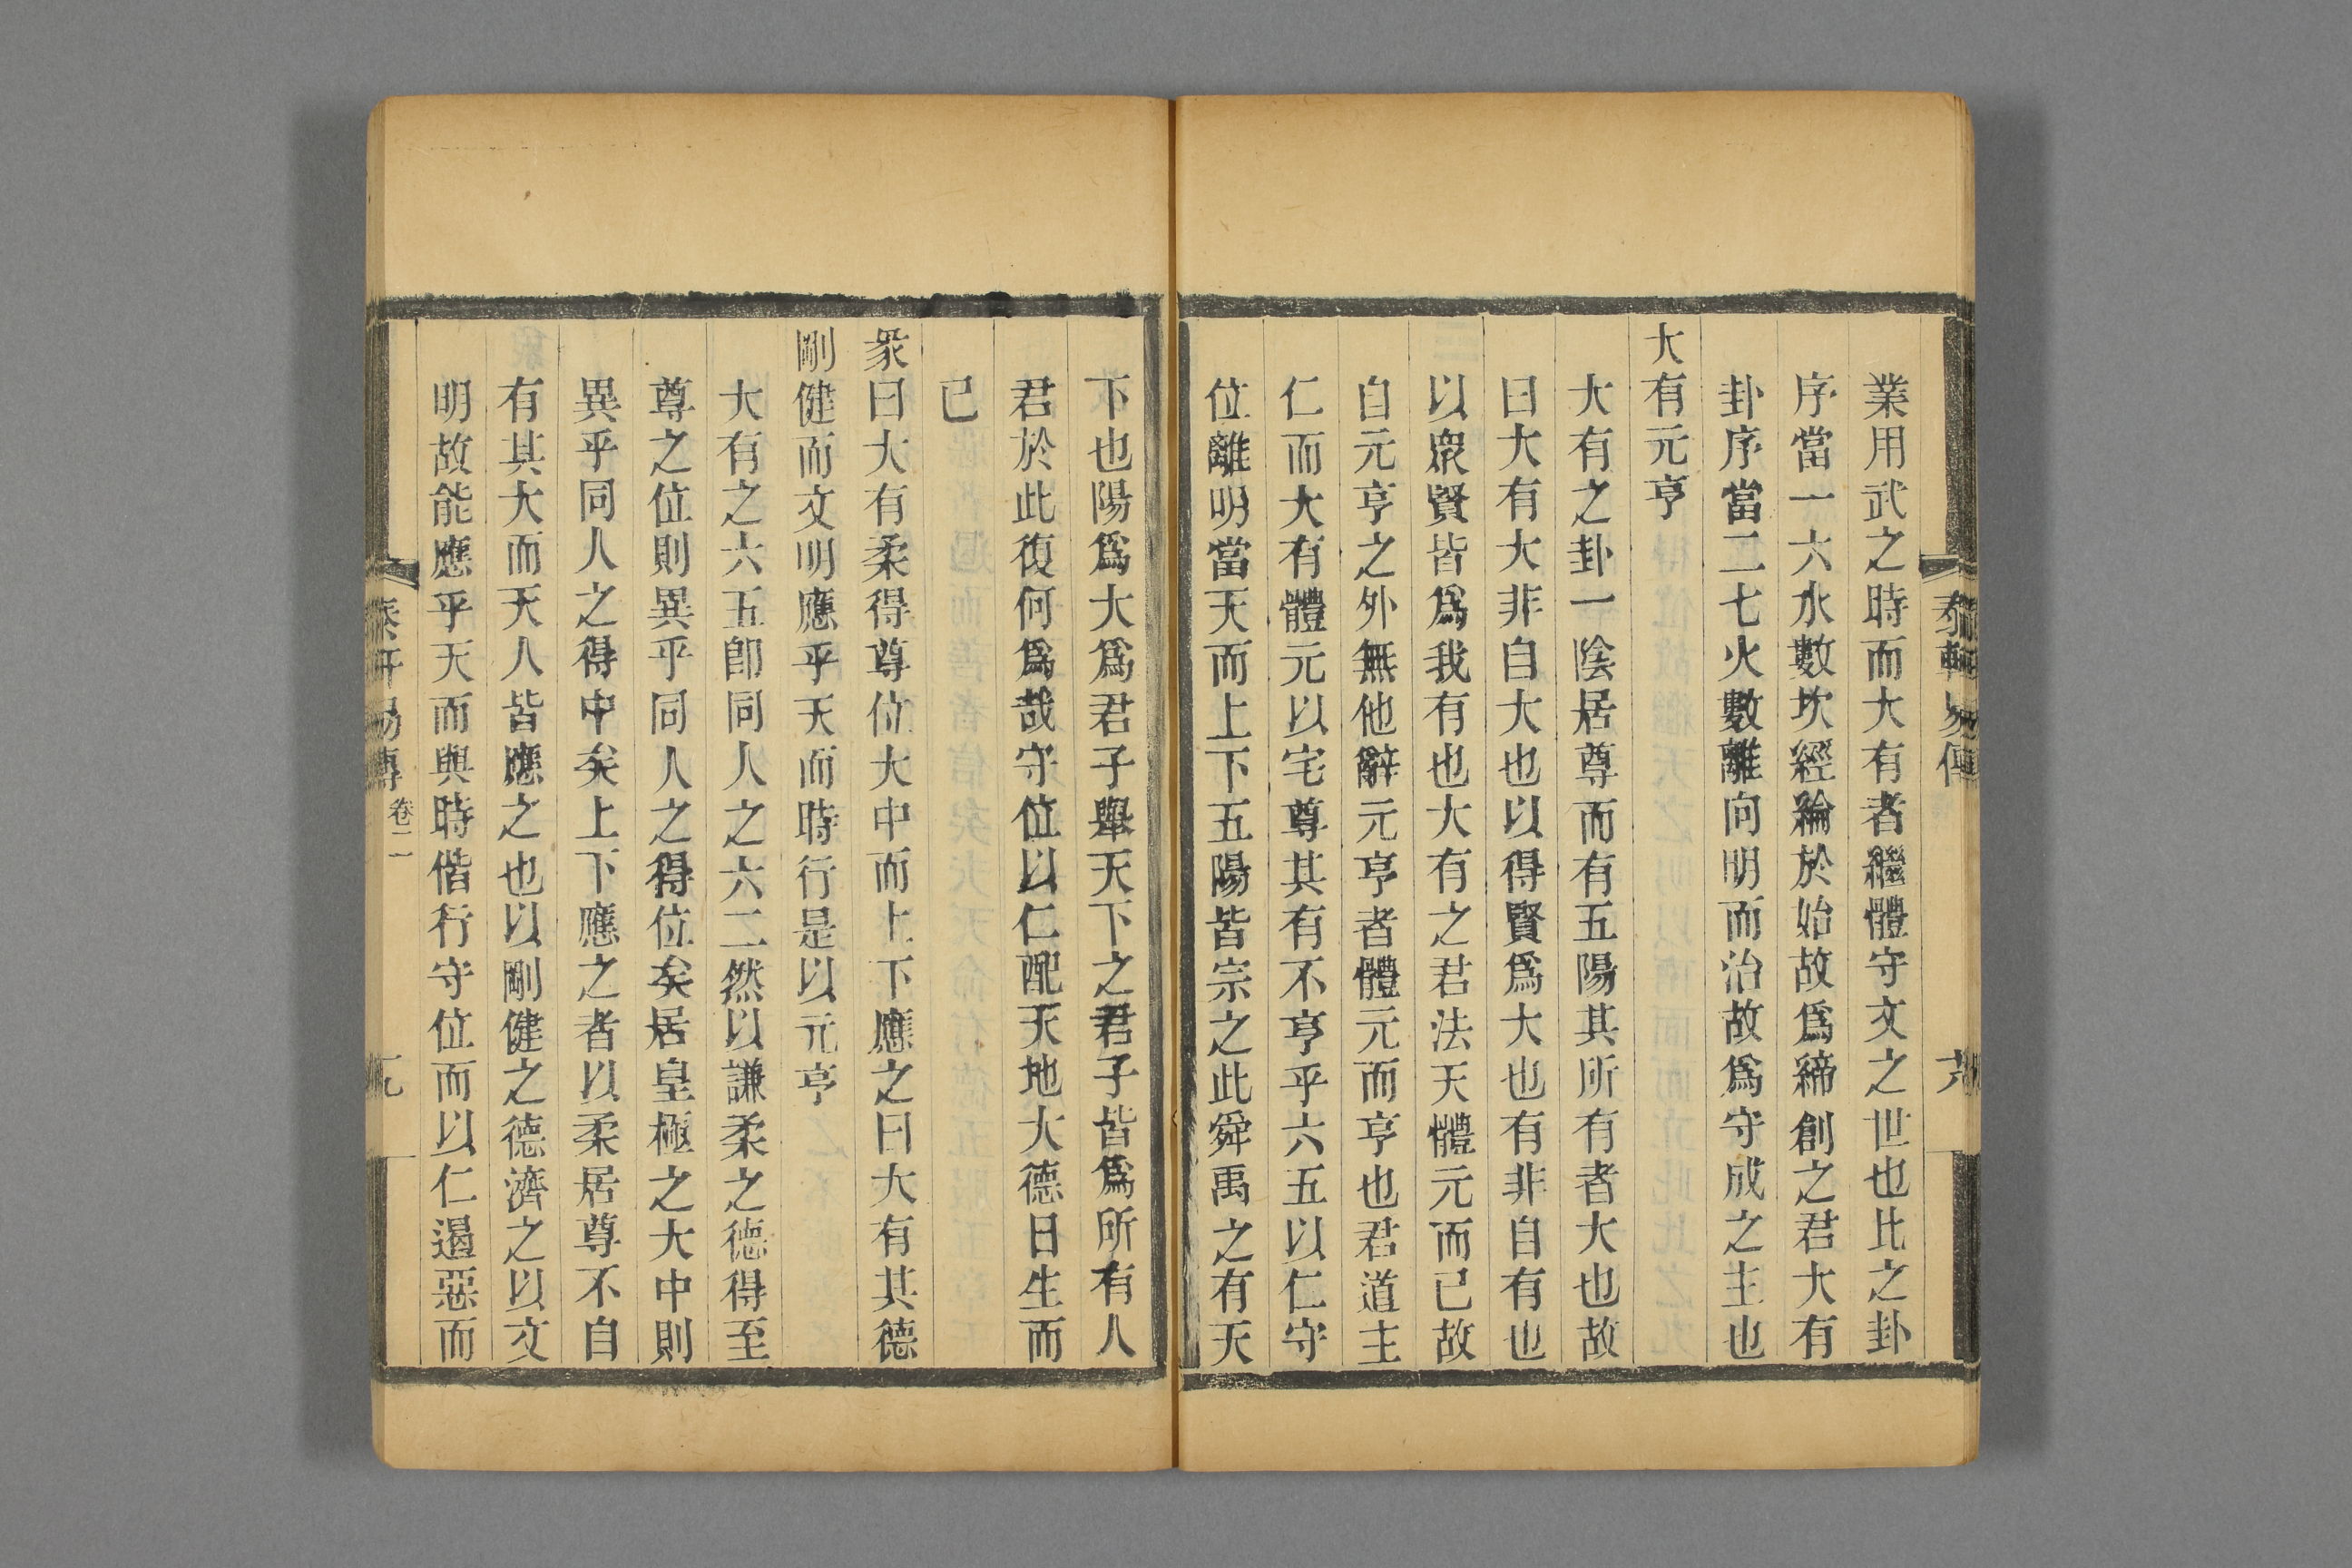 業用武之時而大有者繼體守文之世也比之卦
序當一六水數坎經綸於始故爲締創之君大有
卦序當二七火數離向明而治故爲守成之主也
大有元亨
大有之卦一陰居尊而有五陽其所有者大也故
曰大有大非自大也以得賢爲大也有非自有也
以衆賢皆爲我有也大有之君法天體元而已故
自元亨之外無他辭元亨者體元而亨也君道主
仁而大有體元以宅尊其有不亨乎六五以仁守
位離明當天而上下五陽皆宗之此舜禹之有天
下也陽爲大爲君子舉天下之君子皆爲所有人
君於此復何爲哉守位以仁配天地大德日生而
已
彖曰大有柔得尊位大中而上下應之曰大有其德
剛健而文明應乎天而時行是以元亨
大有之六五卽同人之六二然以謙柔之德得至
尊之位則異乎同人之得位矣居皇極之大中則
異乎同人之得中矣上下應之者以柔居尊不自
有其大而天人皆應之也以剛健之德濟之以文
明故能應乎天而與時偕行守位而以仁遏惡而
易傳
卷二